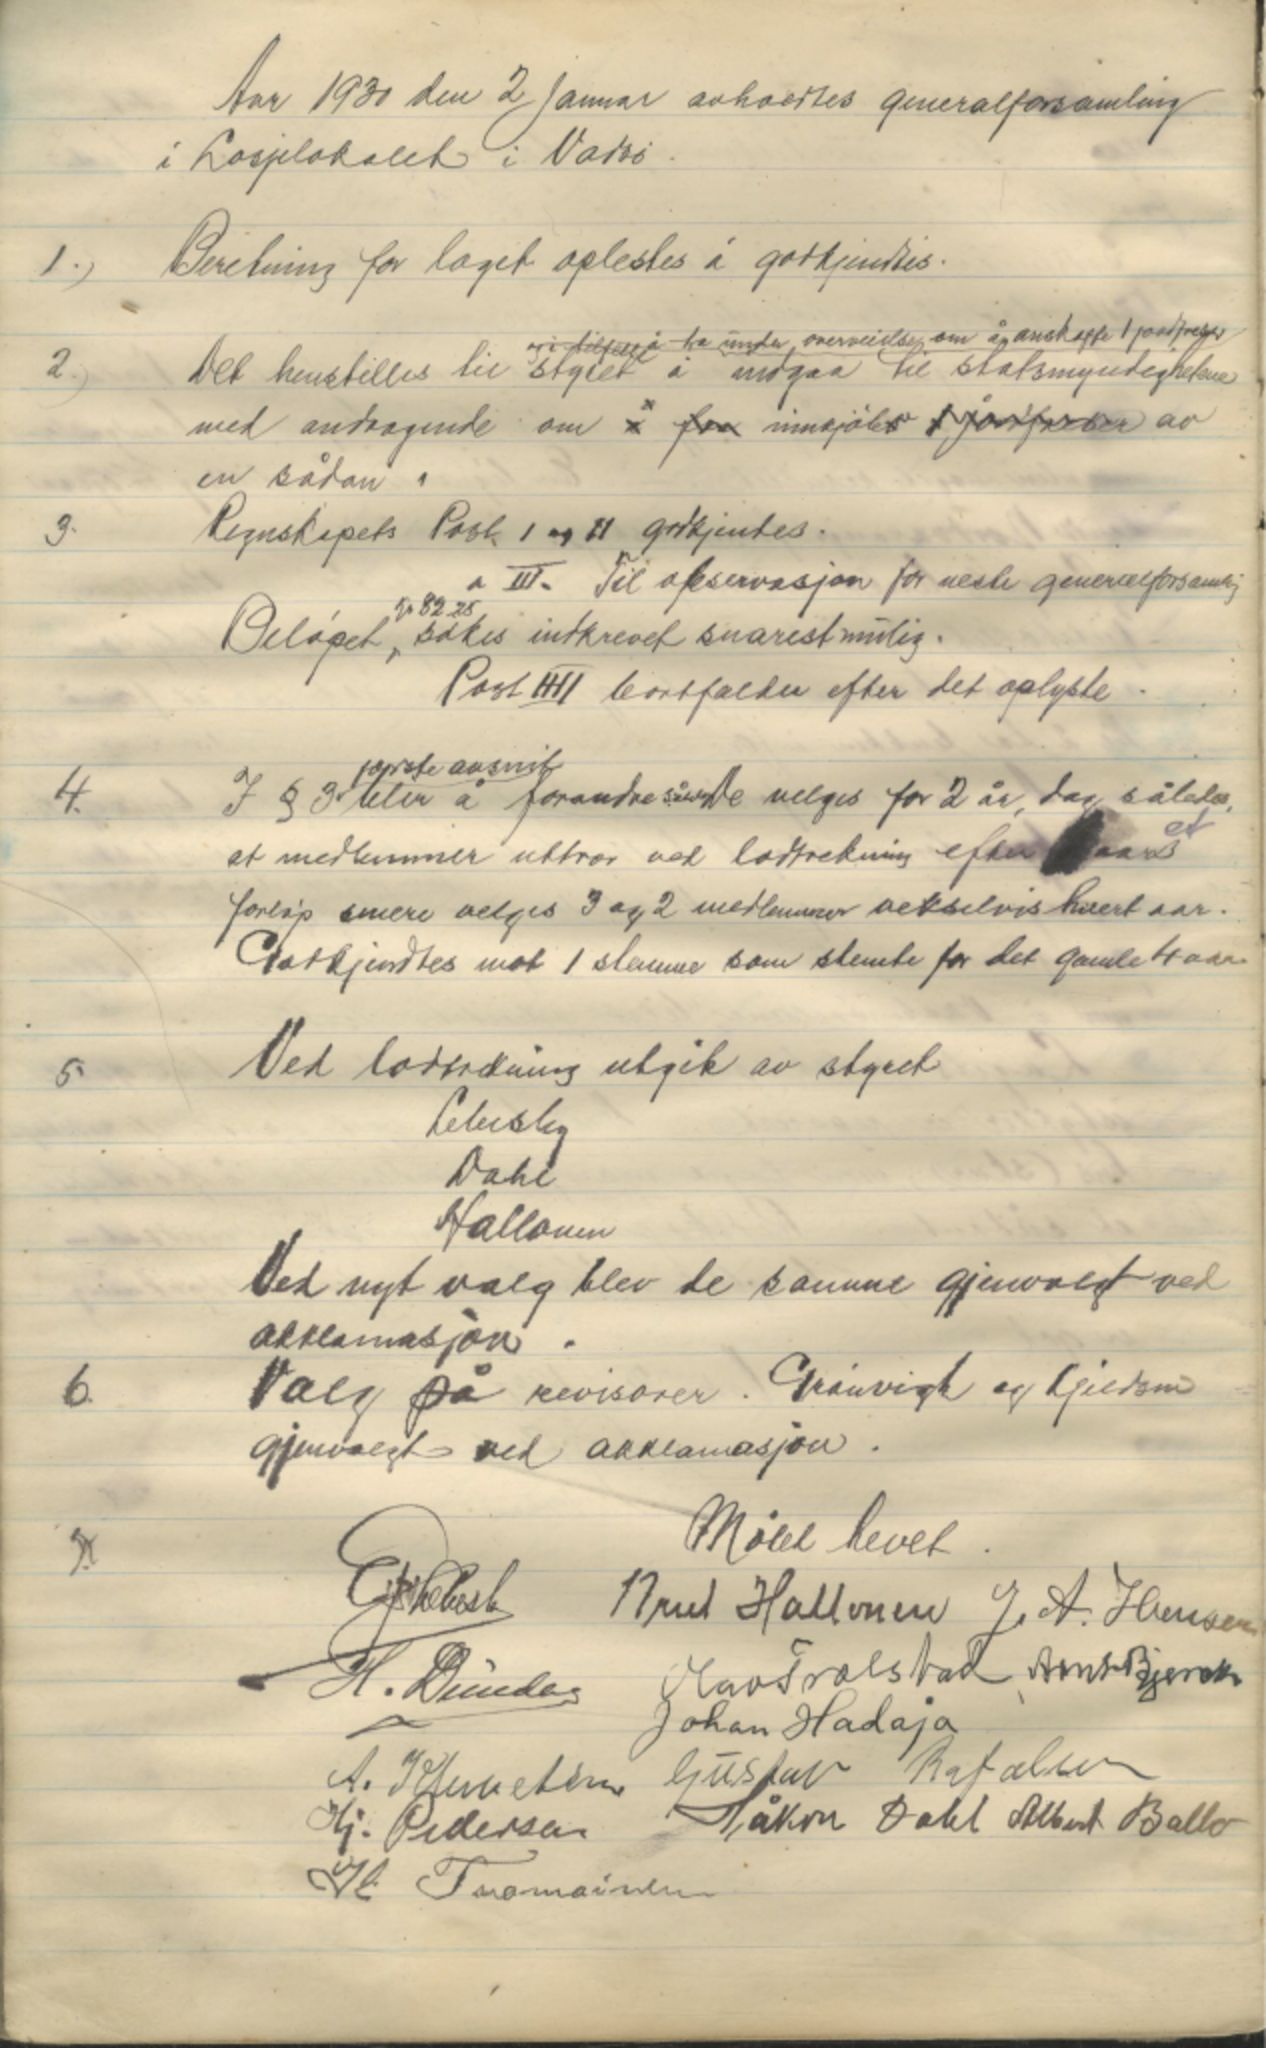 Aar 1930 den 2 Januar avholdtes generalforsamling
i Losjelokalet i Vadsö.
1.) Beretning for laget oplestes å godkjendtes.
og i tilfelle å ta under overveielse om å anskaffe 1 jordfreser
2.) Det henstilles til styret å indgaa til statsmyndighetene
med andragende om innkjöb av
en sådan.
3. Regnskapets Post I og II godkjentes.
" III. Til observasjon for neste generalforsamling
kr 82.25
Belöpet, sökes indkrevet snarest mulig.
Post IIII bortfalder efter det oplyste.
förste avsnit
4. I § 3 blir å forandre således De velges for 2 år, dog således,
at medlemmer uttrer ved lodtrekning efter et aars
forlöp senere velges 3 og 2 medlemmer vekselvis hvert aar.
Godkjendtes mot 1 stemme som stemte for det gamle 4 aar.
5 Ved lodtrekning utgik av styret
Lebesby
Dahl
Hallonen
Ved nyt valg blev de samme gjenvalgt ved
akklamasjon.
6. Valg på revisorer. Grönvigh og
gjenvalgt ved akklamasjon.
7. Mötet hevet.
Knut Hallonen J. A. Hansen
H. Olav Trölstad Arnt Bjerck
Johan Hadaja
A. Gustav Rafaelsen
Hj. Pedersen Håkon Dahl Albert Ballo
Tuomainen